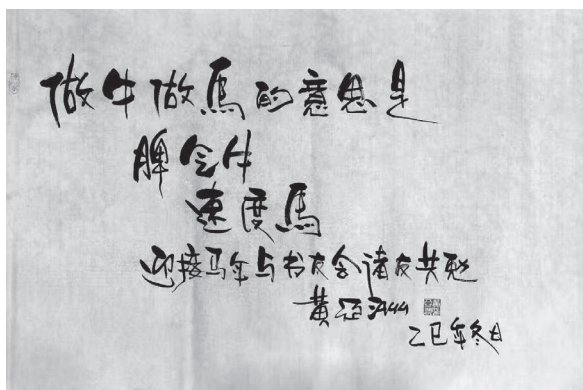 做牛做馬的意思是
脾牛
速度馬
迎接马年与书友会诸友共勉
黄亚洲
乙巳年冬日